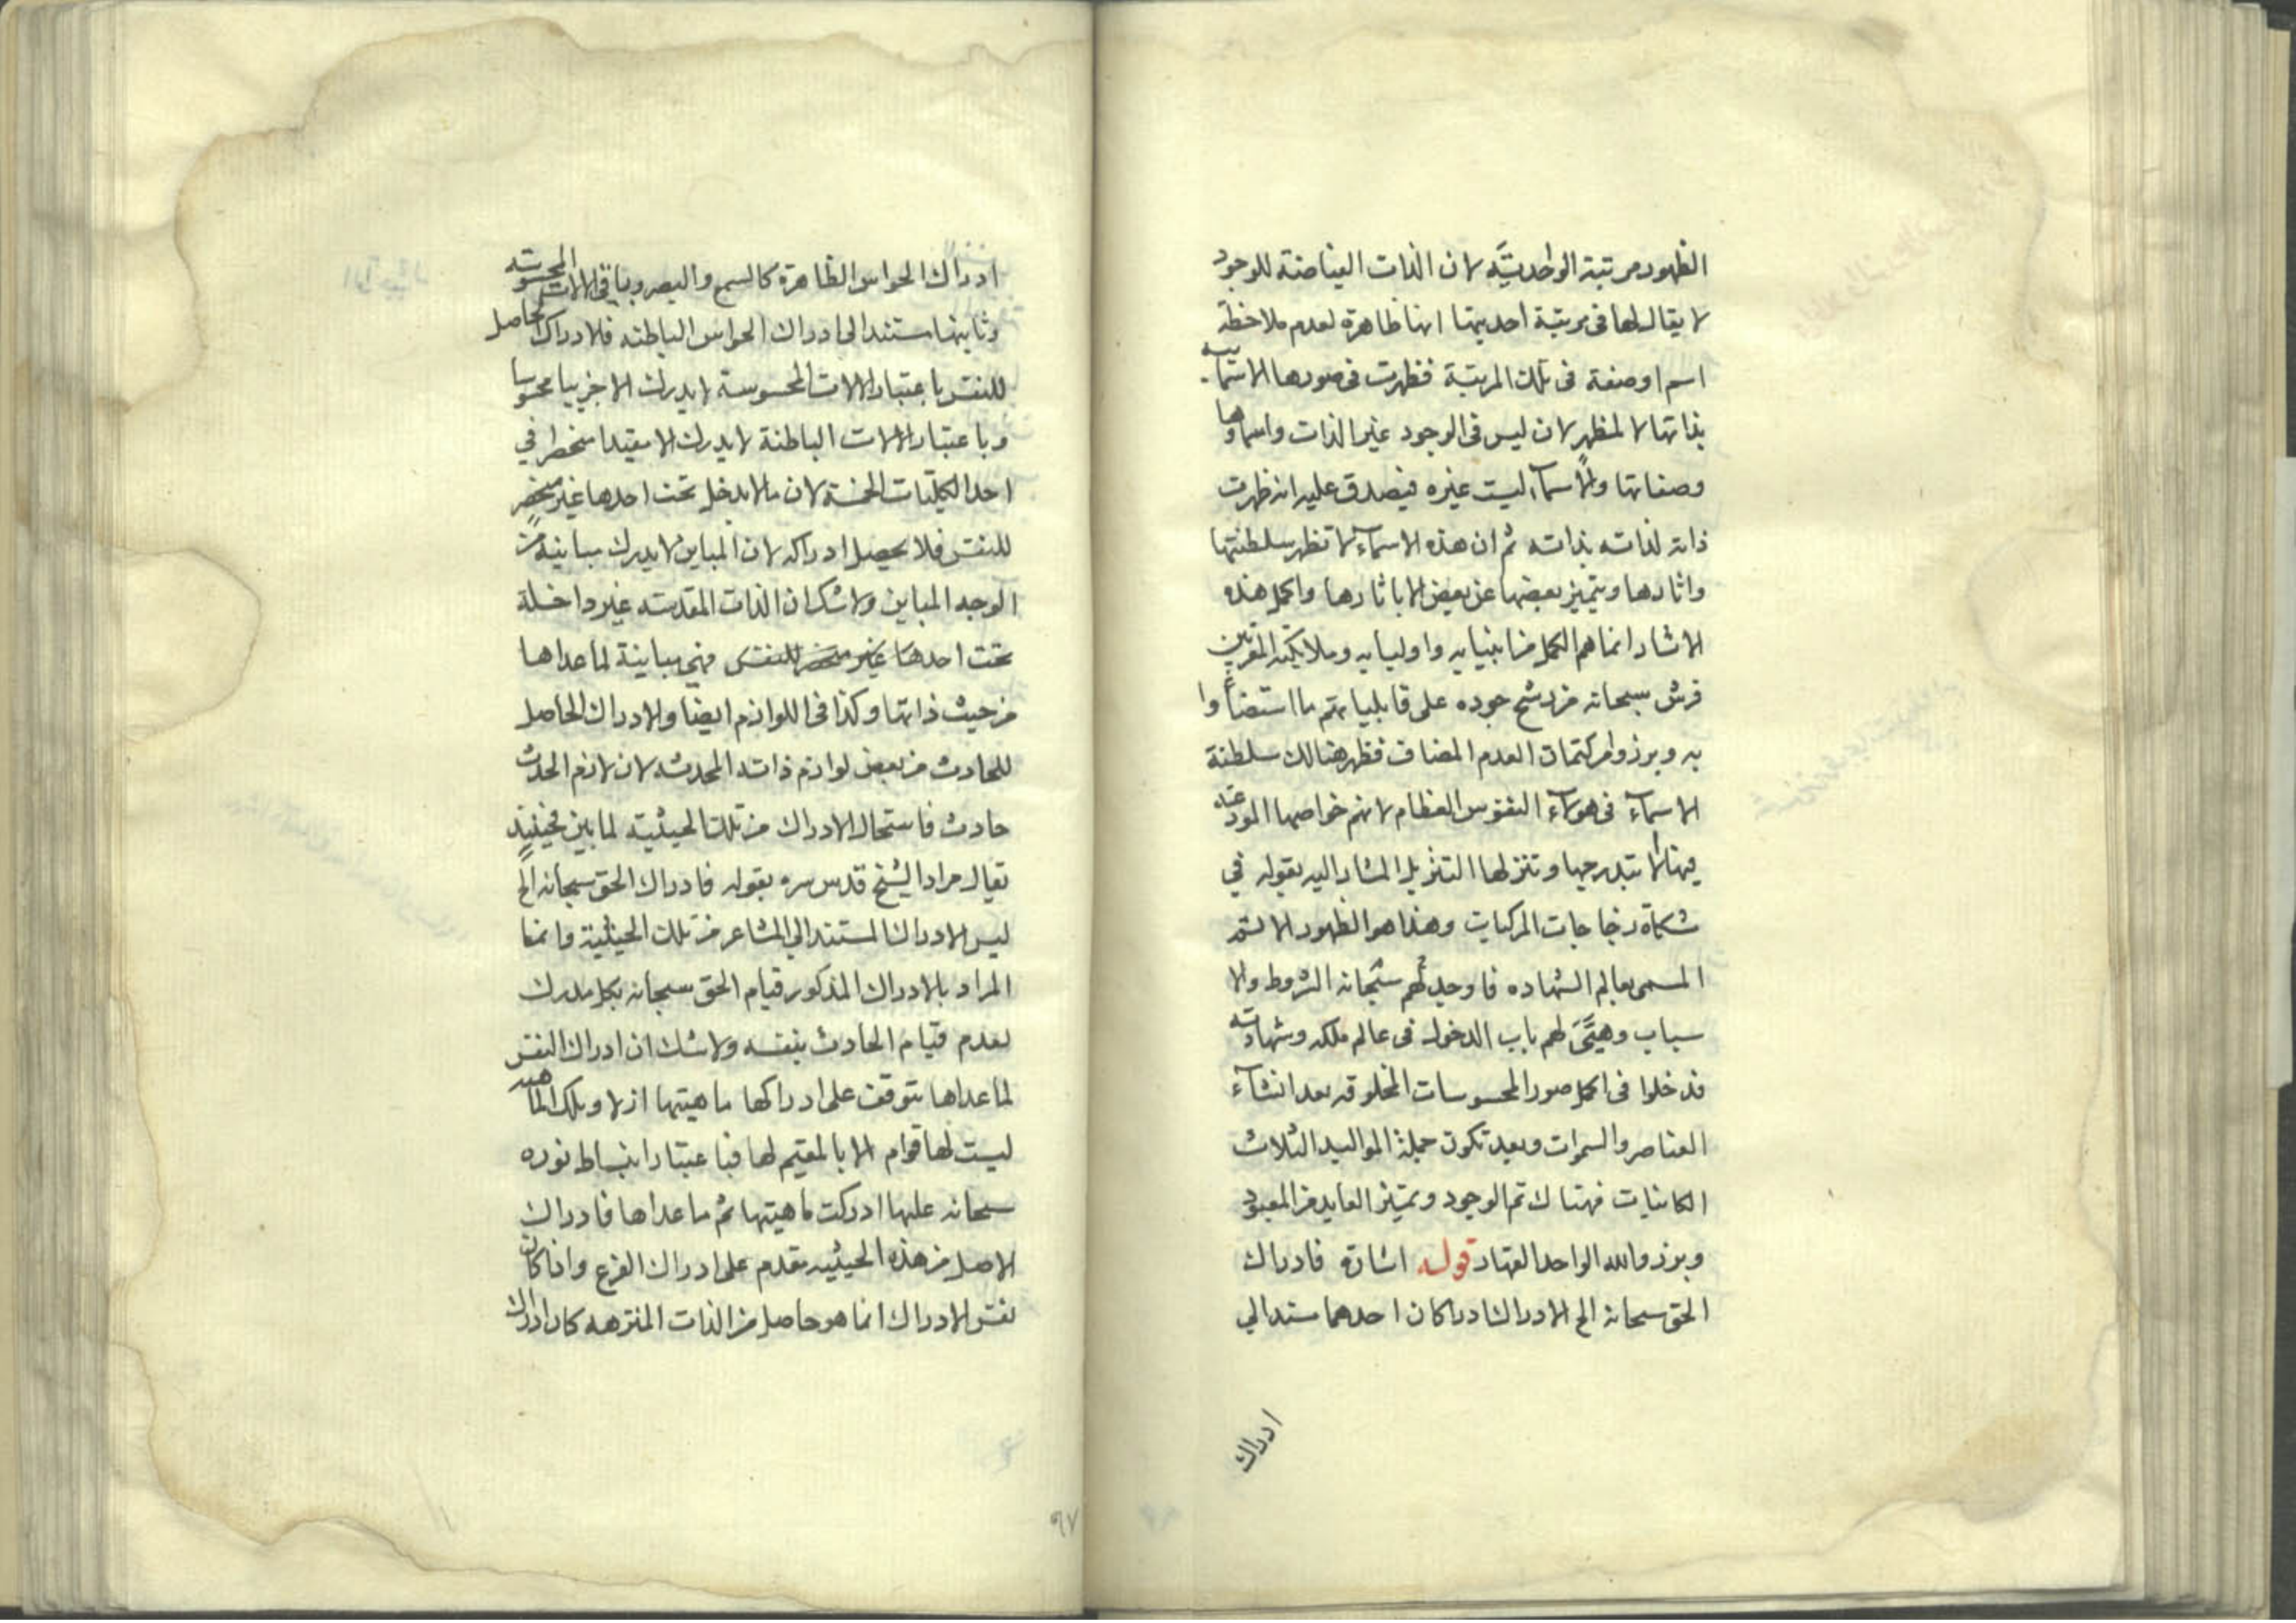 الظهور مرتبة الواحديَّة لان الذات الفياضة للوجود
لا يقال لها فى مرتبة احديتها انها ظاهرة لعدم ملاحظة
اسم او صفة فى تلك المرتبة فظهرت فى صورها الاسمآئيه
بذاتها لا لمظهر لان ليس فى الوجود غير الذات واسماوها
وصفاتها والاسمآء ليست غيره فيصدق عليه انه ظهرت
ذاته لذاته بذاته ثم ان هذه الاسمآء لا تظهر سلطنتها
واثارها ويتميز بعضها عن بعض الا باثارها واكمل هذه
الاثار انما هم الكمل من انبيايه واوليايه وملايكته المقربين
فرش سبحانه من رشح جوده على قابلياتهم ما استضاوا
به وبرزوا من كتمان العدم المضاف فظهر هنالك سلطنة
الاسمآء فى هولآء النفوس العظام لانهم خواصها المودعة
فيها لا بتدرجها وتنزلها التنزيل المشار اليه بقوله في
مشكاة زجاجات المركبات وهذا هو الظهور الاتم
المسمى بعالم الشهاده فاوجد لهم سبحانه الشروط والا
سباب وهيَّئَ لهم باب الدخول فى عالم ملكه وشهادته
فدخلوا فى اكمل صور المحسوسات المخلوقه بعد انشآء
العناصر والسموات وبعد تكون جملة المواليد الثلاث
الكاينات فهناك تم الوجود وتميز العابد من المعبود
وبرزوا لله الواحد القهار قوله اشارة فادراك
الحق سبحانه الخ الادراك ادراكان احدهما مستند الي
ادراك
ادراك الحواس الظاهرة كالسمع والبصر وباقى الالات المحسوسه
وثانيهما مستند الى ادراك الحواس الباطنه فلادراك الحاصل
للنفس باعتبار الالات المحسوسة لا يدرك الا جزييا محسوسا
وباعتبار الالات الباطنة لا يدرك الا مقيدا منحصرا في
احد الكليات الخمسة لان ما لا يدخل تحت احدها غير منحصر
للنفس فلا يحصل ادراكه لان المباين لا يدرك مباينه من
الوجه المباين ولا شك ان الذات المقدسه غير داخلة
تحت احدها غير منحصر للنفس فهي مباينة لما عداها
من حيث ذاتها وكذا فى اللوازم ايضا والادراك الحاصل
للحادث من بعض لوازم ذاته المحدثه لان لازم الحدث
حادث فاستحال الادراك من تلك الحيثية لما بين فحينيذ
يقال مراد الشيخ قدس سره بقوله فادراك الحق سبحانه الخ
ليس الادراك المستند الى المشاعر من تلك الحيثية وانما
المراد بالادراك المذكور قيام الحق سبحانه بكل مدرك
لعدم قيام الحادث بنفسه ولا شك ان ادراك النفس
لما عداها يتوقف على ادراكها ماهيتها ازلا وتلك الماهيه
ليست لها قوام الا بالمقيم لها فباعتبار انبساط نوره
سبحانه عليها ادركت ماهيتها ثم ما عداها فادراك
الاصل من هذه الحيثيه مقدم على ادراك الفرع واذا كان
نفس الادراك انما هو حاصل من الذات المنزهه كان ادراك
٩٧